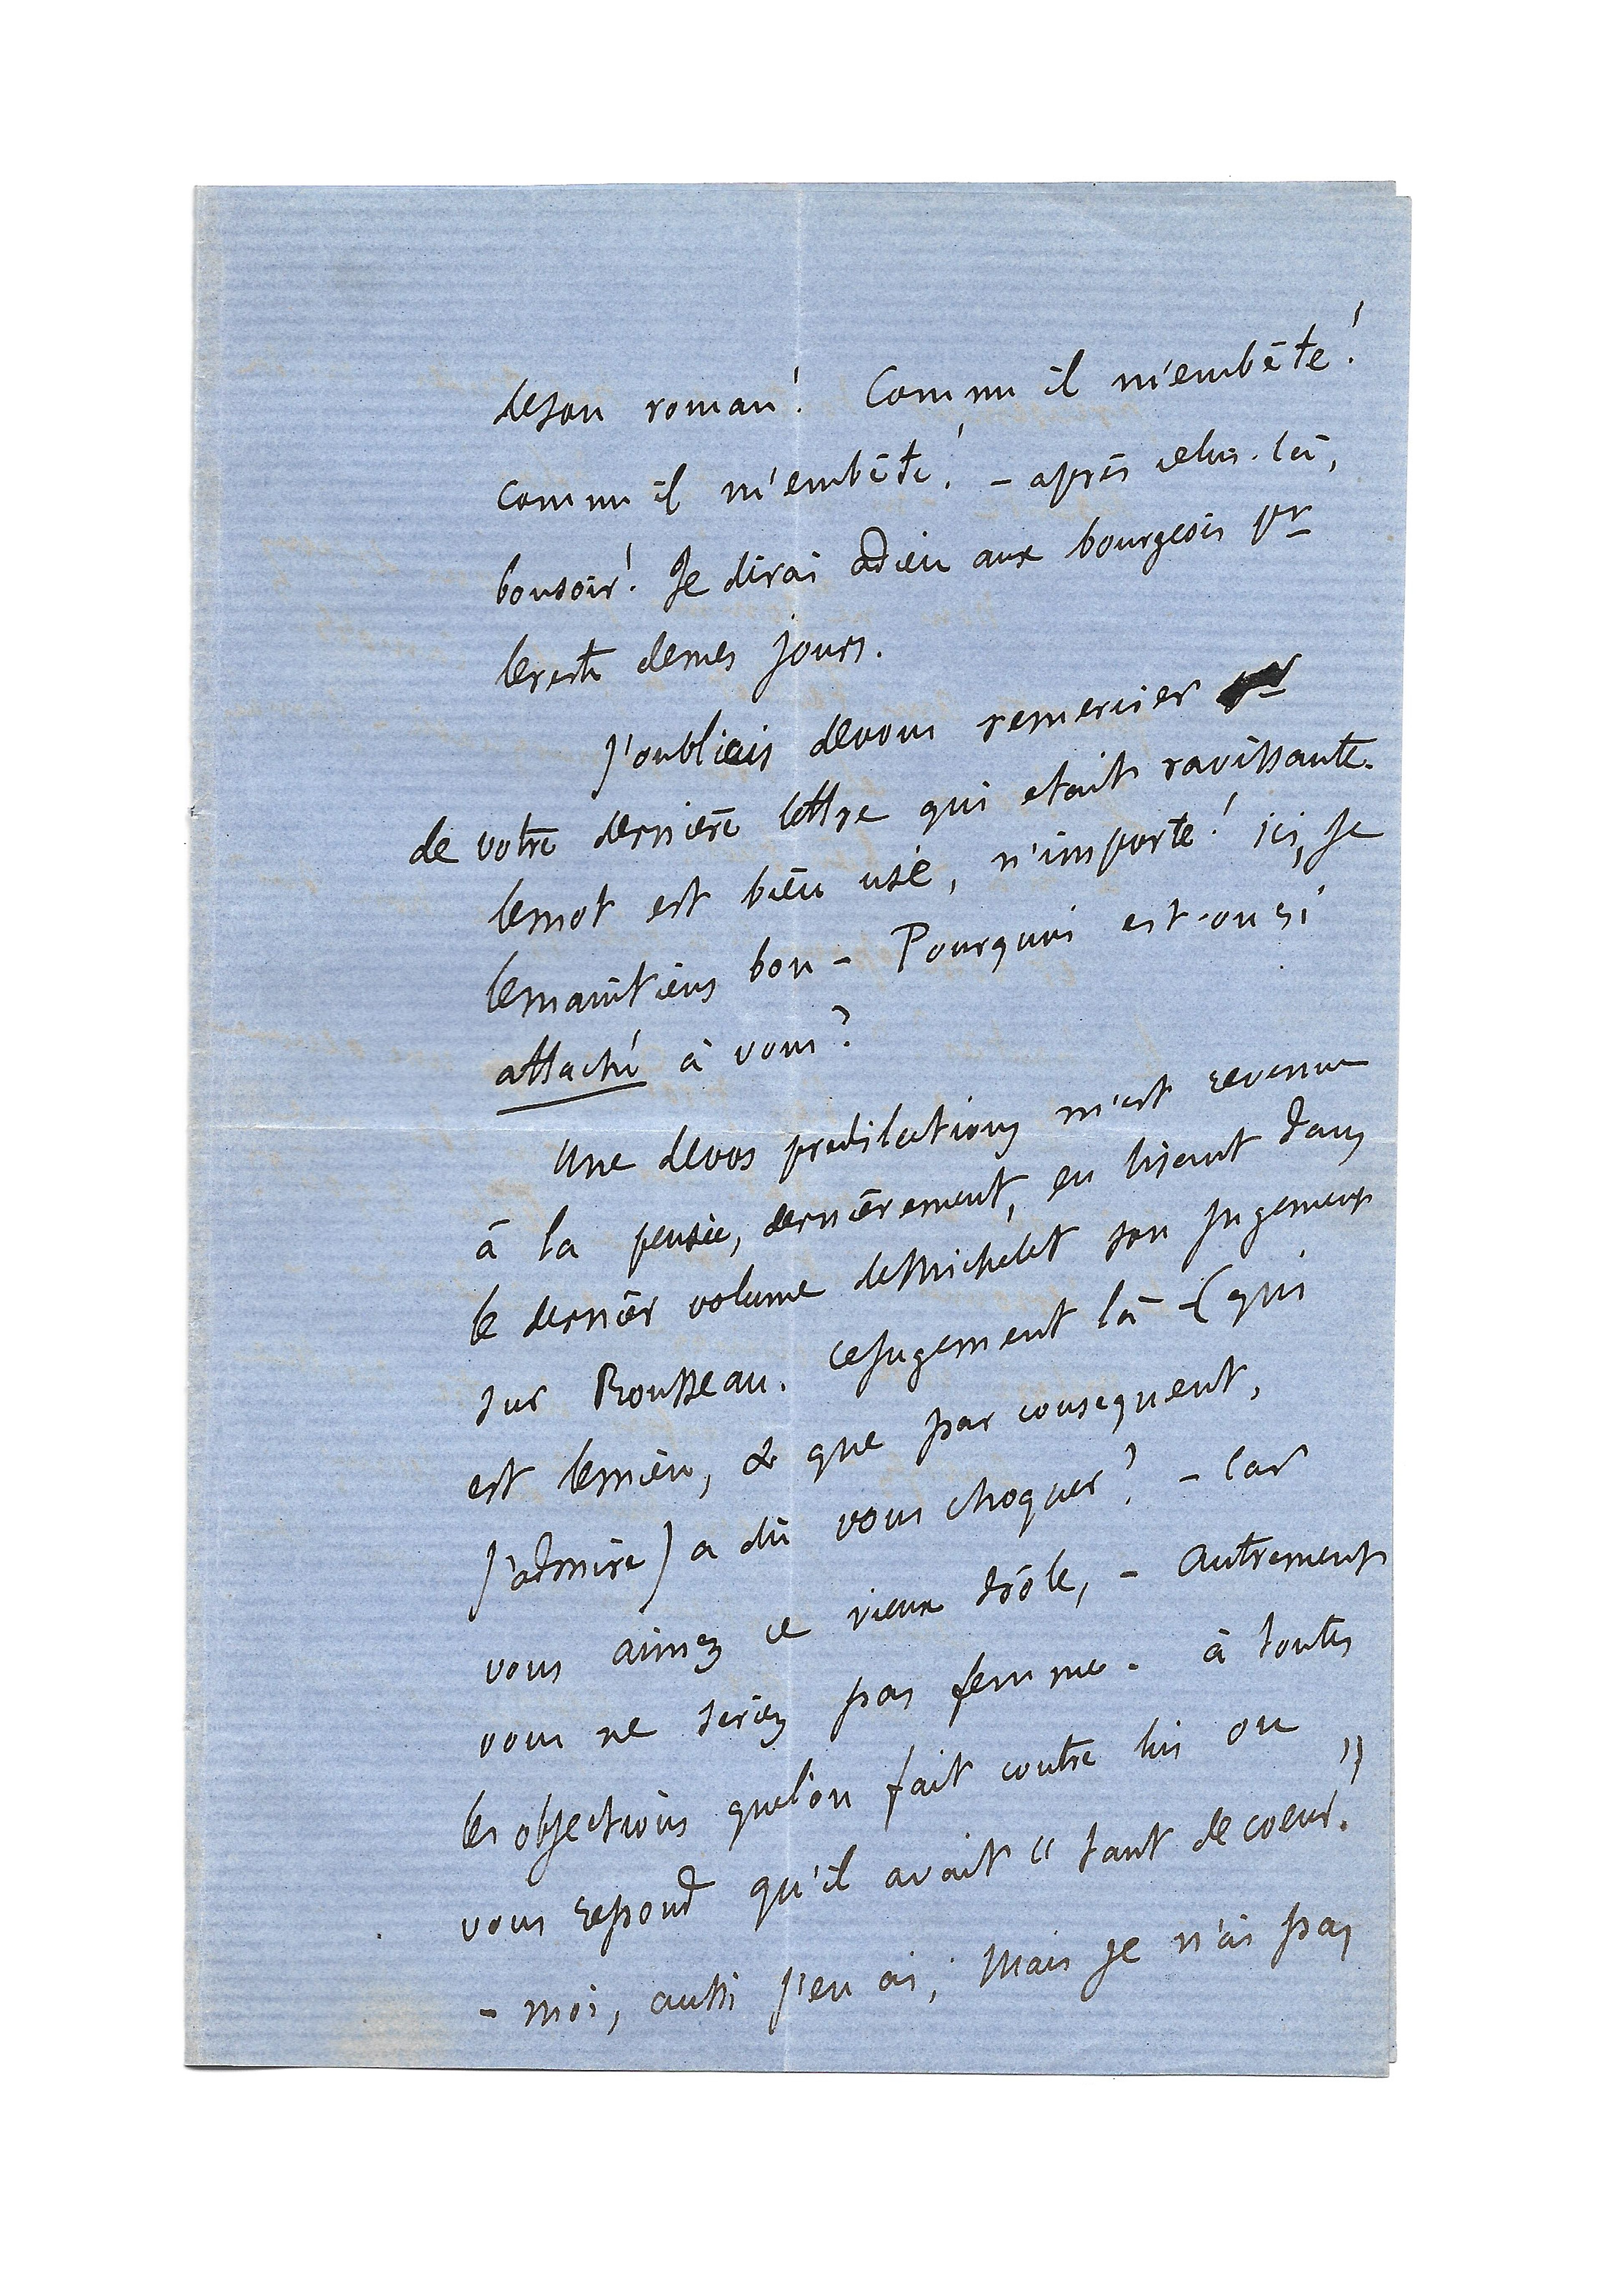 de son roman! Comme il m'embête!
comme il m'embête! – après celui-là,
bonsoir! Je dirai adieu aux bourgeois pr
le reste de mes jours.
J'oubliais de vous remercier
de votre dernière lettre qui etait ravissante.
le mot est bien usé, n'importe! ici, je
le maintiens bon – Pourquoi est-on si
attaché à vous?
Une de vos predilections m'est revenue
à la pensée, dernièrement, en lisant dans
le dernier volume de Michelet son jugement
sur Rousseau. ce jugement là – (qui
est le mien, & que par consequent,
j'admire) a dû vous choquer? – Car
vous aimez ce vieux drôle, – autrement
vous ne seriez pas femme. à toutes
les objections que l'on fait contre lui on
vous repond qu'il avait " tant de coeur. "
– moi, aussi j'en ai; Mais je n'ai pas